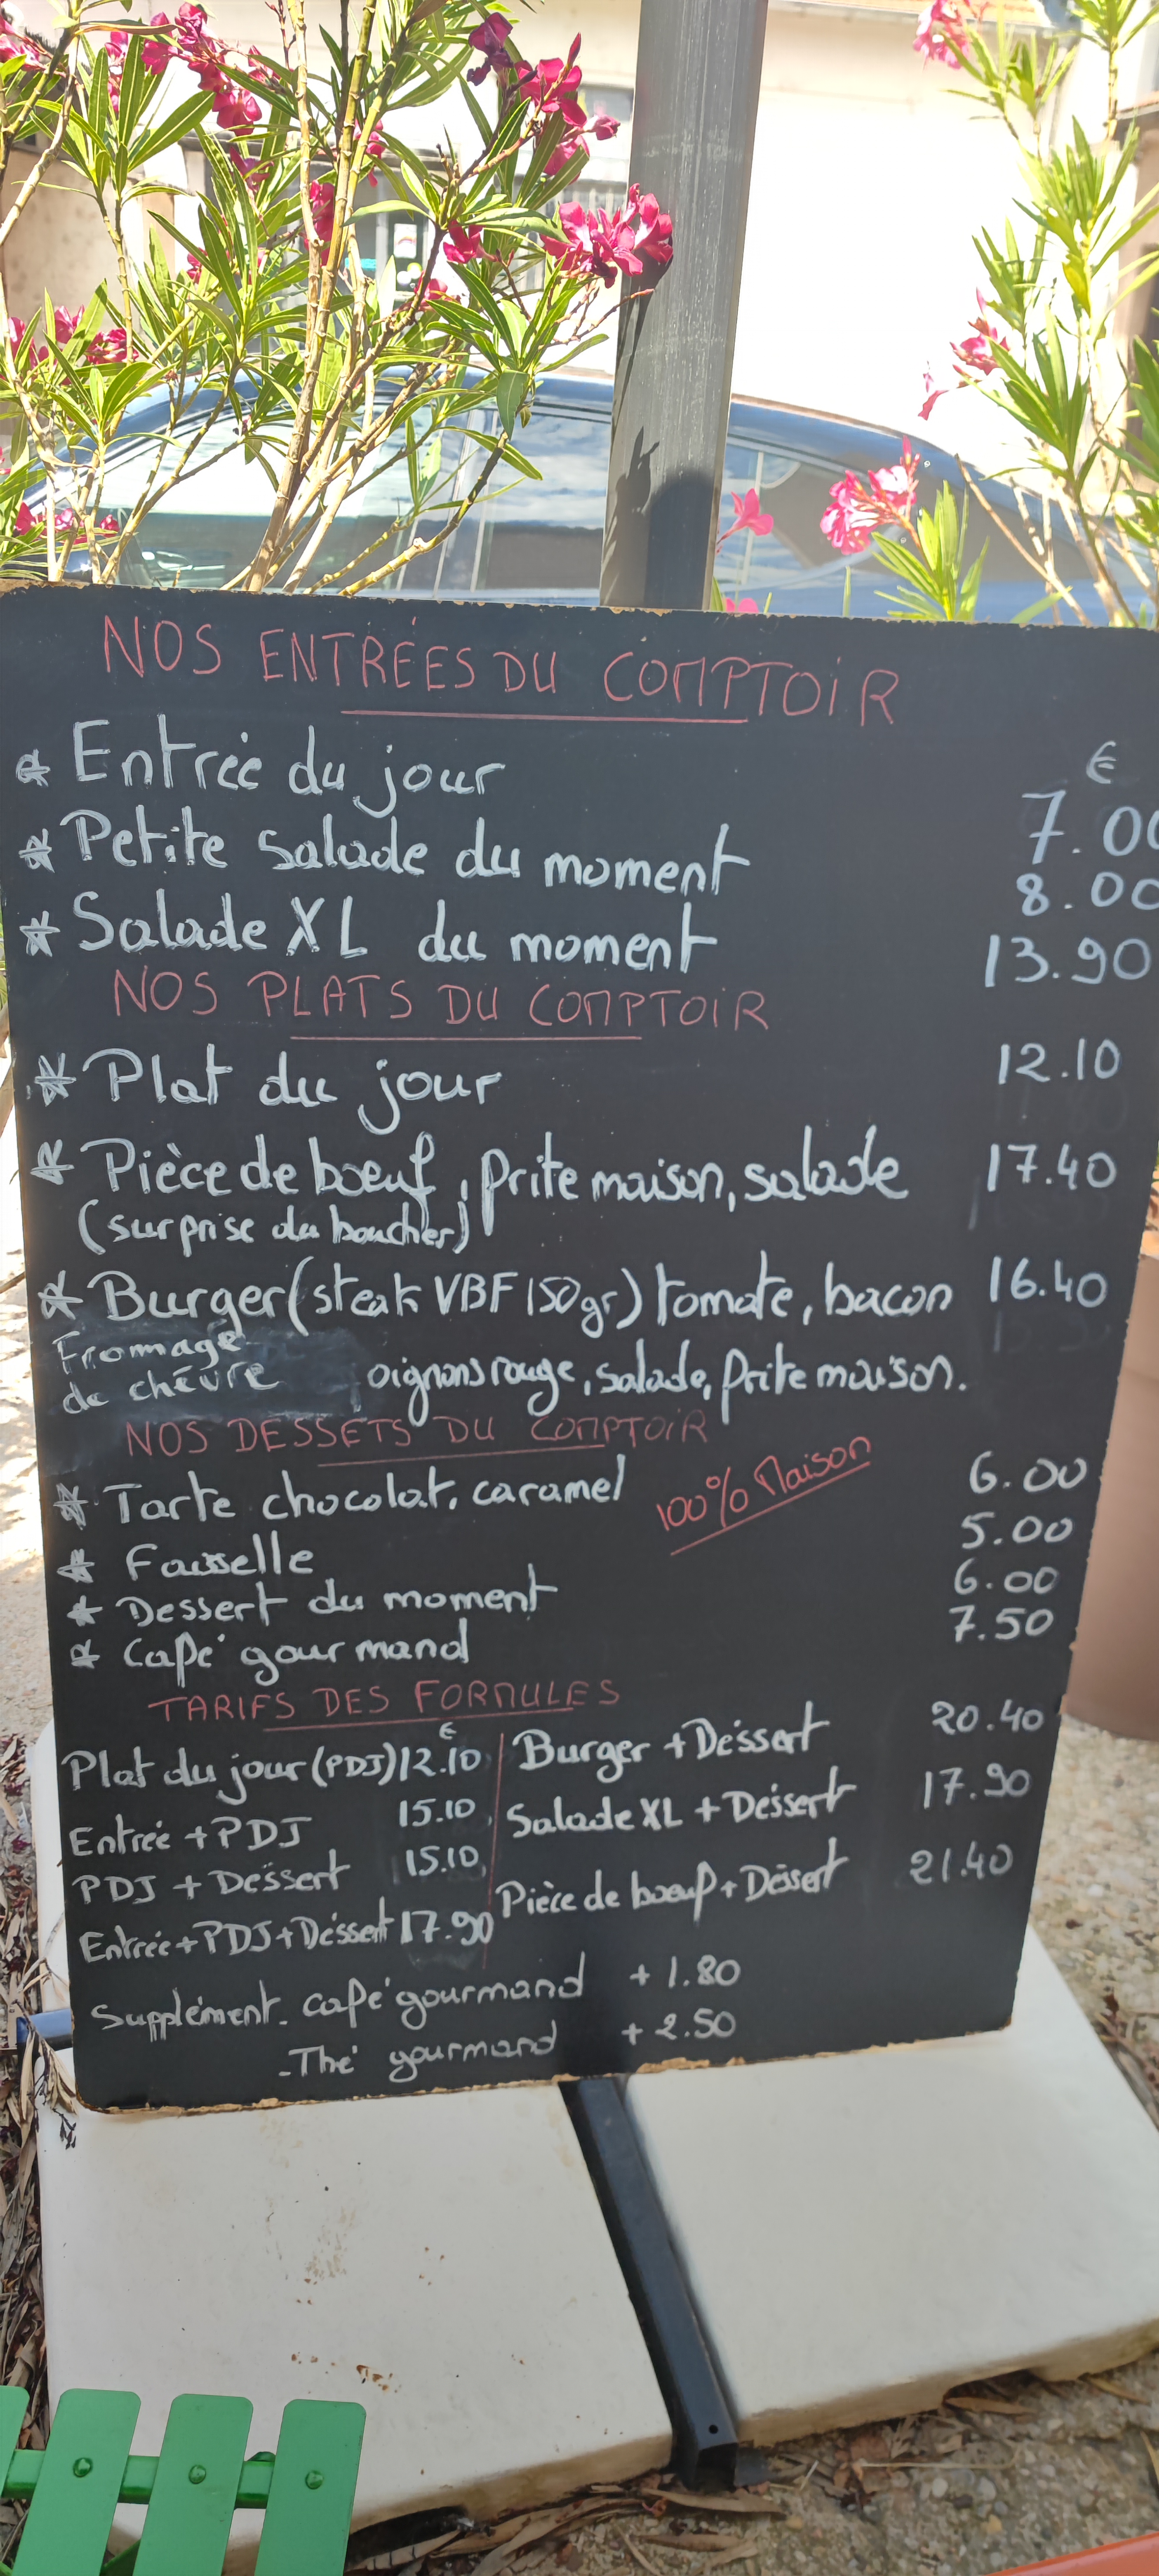 NOS ENTRÉES DU COMPTOIR
€
* Entrée du jour 7.00
* Petite salade du moment 8.00
* Salade XL du moment 13.90
NOS PLATS DU COMPTOIR
* Plat du jour 12.10
* Pièce de boeuf, frite maison, salade 17.40
(surprise du boucher)
* Burger (steak VBF 150gr) tomate, bacon 16.40
Fromage
de chèvre oignons rouge, salade, frite maison.
NOS DESSETS DU COMPTOIR
* Tarte chocolat, caramel 6.00
100% Maison
* Faisselle 5.00
* Dessert du moment 6.00
* Café gourmand 7.50
TARIFS DES FORMULES
€
Plat du jour (PDJ) 12.10
Entrée + PDJ 15.10
PDJ + Déssert 15.10
Entrée + PDJ + Déssert 17.90
Burger + Déssert 20.40
Salade XL + Déssert 17.90
Pièce de boeuf + Déssert 21.40
Supplément - café gourmand + 1.80
- Thé gourmand + 2.50